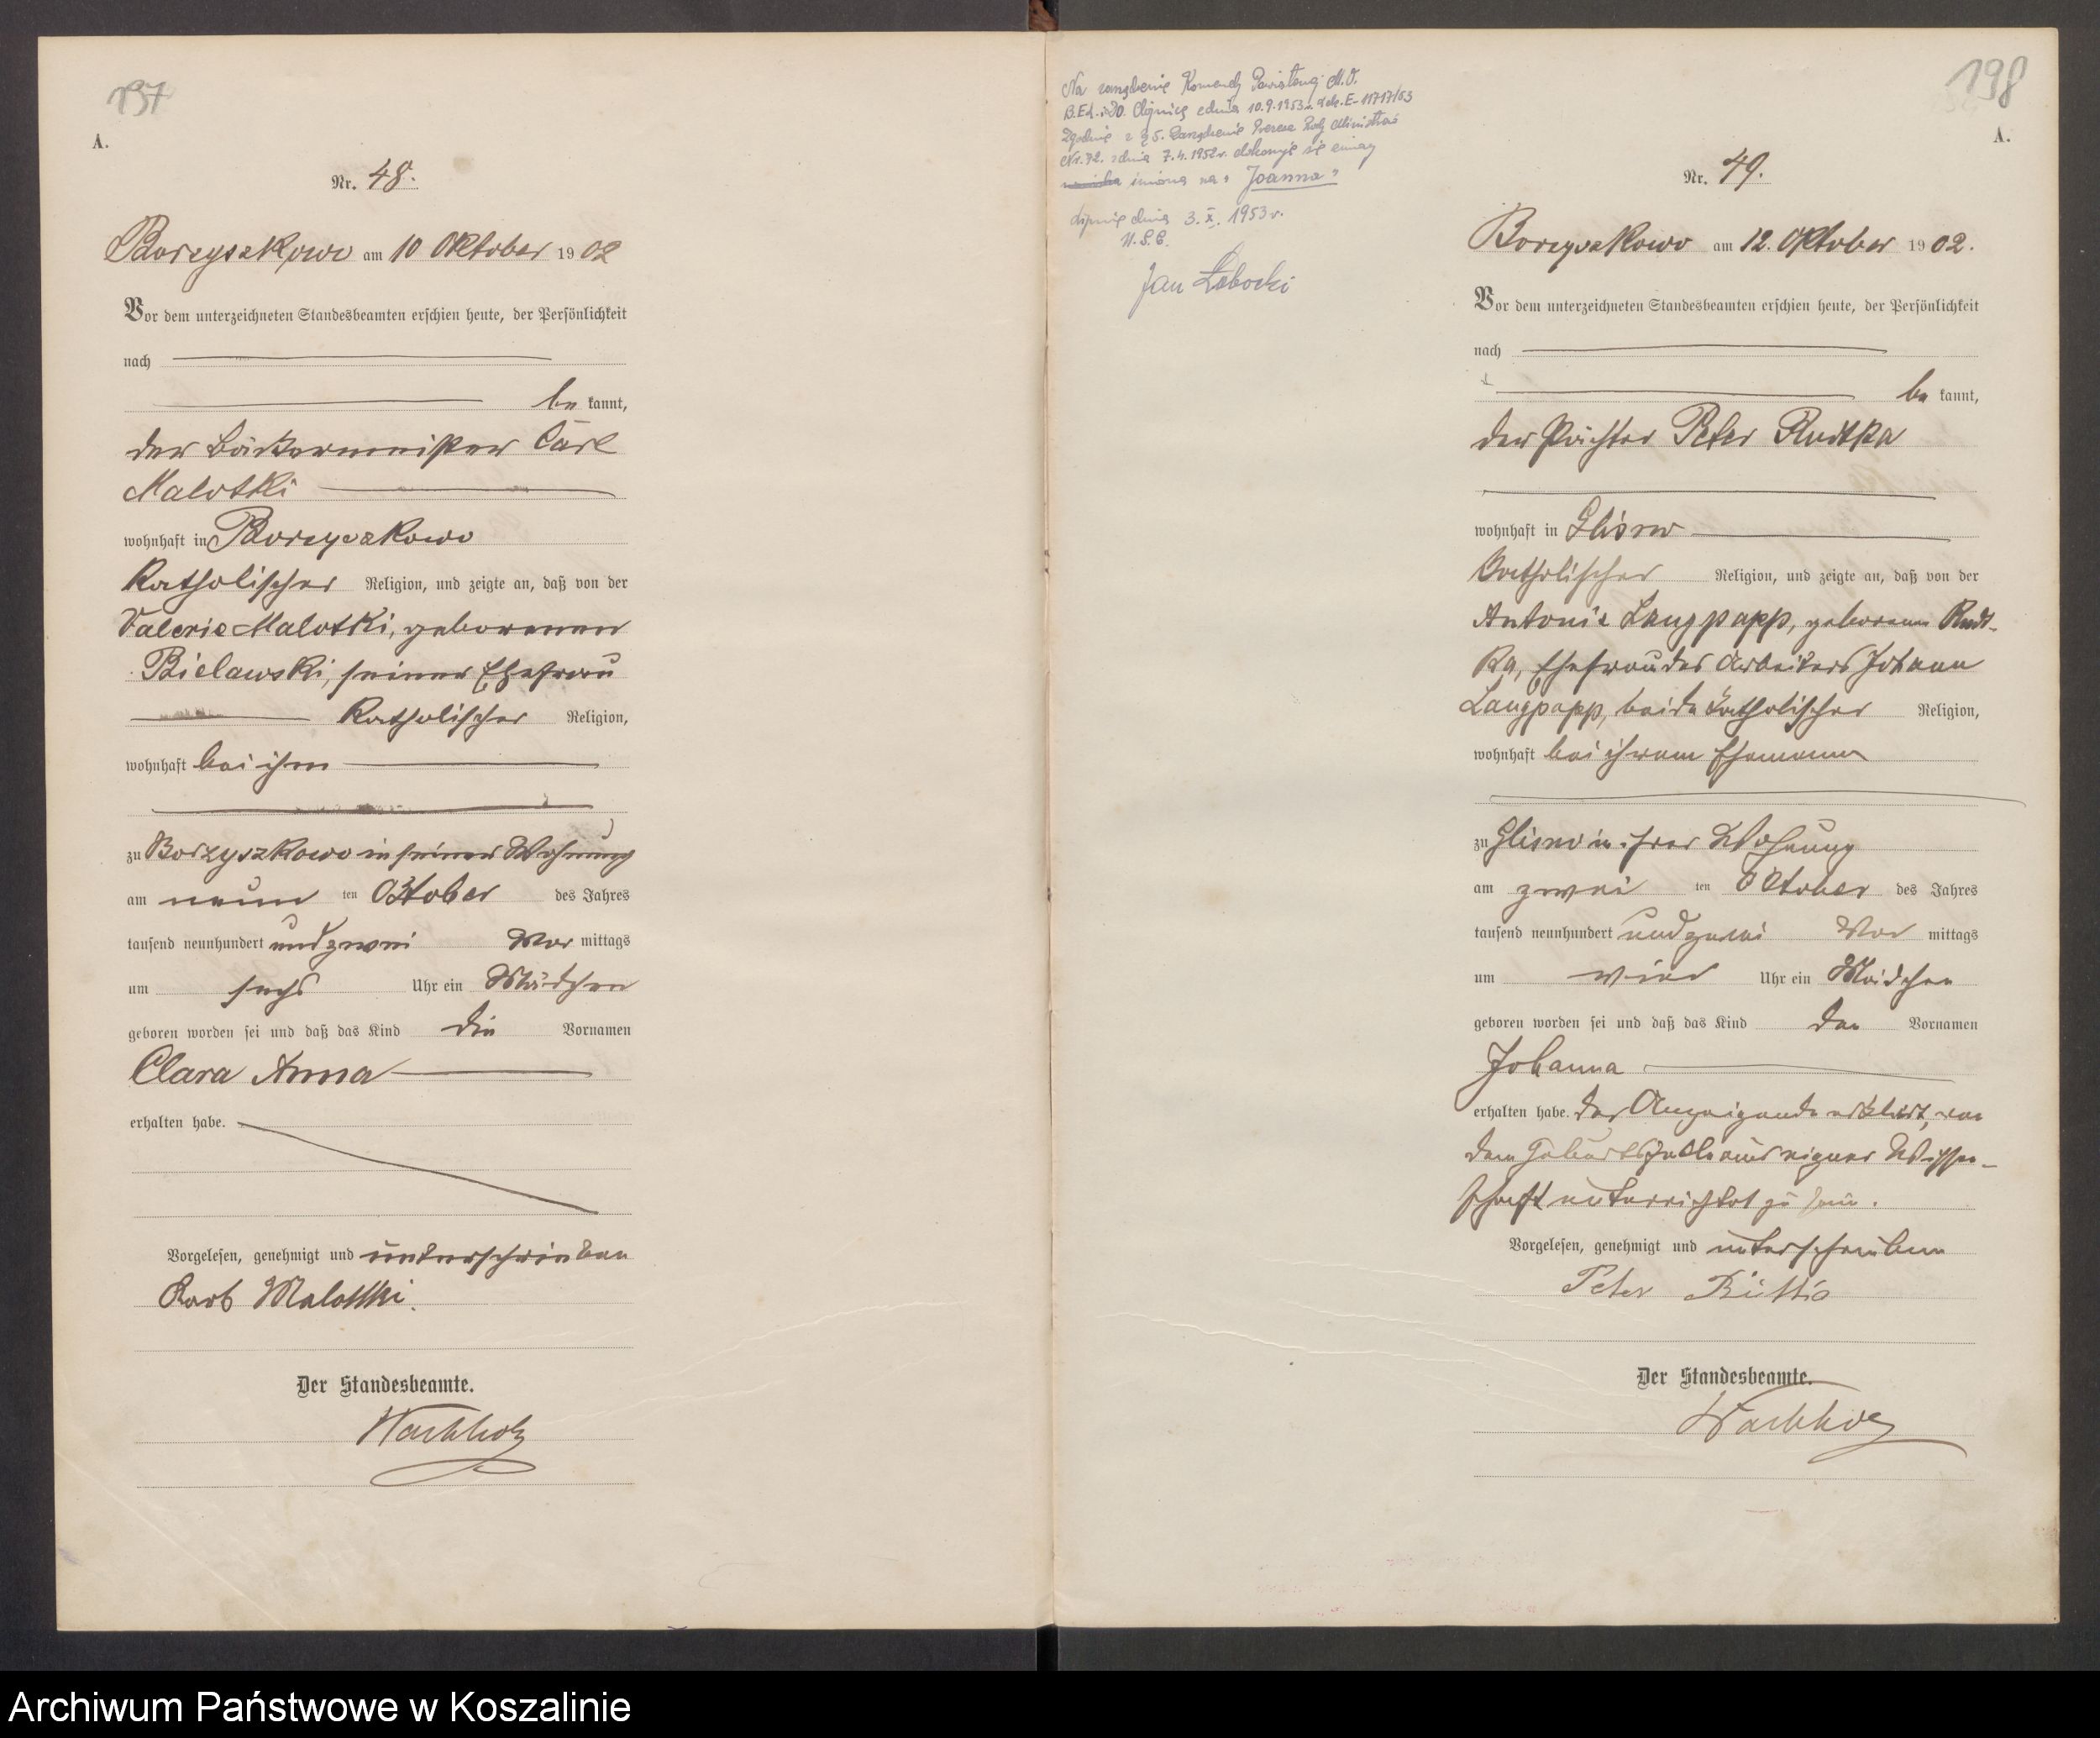 137
A.
Nr. 48.
Borzyszkowo am 10 Oktober 1902
Vor dem unterzeichneten Standesbeamten erschien heute, der Persönlichkeit
nach
be kannt,
der Bäckermeister Carl
Malotki
wohnhaft in Borzyszkowo
katholischer Religion, und zeigte an, daß von der
Valerie Malotki, geborenen
Bielawski, seiner Ehefrau
katholischer Religion,
wohnhaft bei ihm
zu Borzyszkowo in seiner Wohnung
am neun ten Oktober des Jahres
tausend neunhundert und zwei Vor mittags
um sechs Uhr ein Mädchen
geboren worden sei und daß das Kind die Vornamen
Clara Anna
erhalten habe.
Vorgelesen, genehmigt und unterschrieben
Karl Malotki.
Der Standesbeamte.
Wachholz
Na zarządzenie Komendy Powiatowej M.O.
10.9.1953 r. E-11717/53
Zgodnie z § 5. Zarządzenie Prezesa Rady Ministrów
Nr. 92. z dnia 7.4.1952 r. dokonuje się zmiany
imiona na "Joanna"
dnia 3.X.1953 r.
U.S.C.
Jan
198
A.
Nr. 49.
Borzyszkowo am 12. Oktober 1902.
Vor dem unterzeichneten Standesbeamten erschien heute, der Persönlichkeit
nach
be kannt,
der Pächter Peter Rudtka
wohnhaft in Glisno
katholischer Religion, und zeigte an, daß von der
Antonie Langpapp, geborenen Rudt-
ka, Ehefrau des Arbeiters Johann
Langpapp, beide katholischer Religion,
wohnhaft bei ihrem Ehemann
zu Glisno in ihrer Wohnung
am zwei ten Oktober des Jahres
tausend neunhundert und zwei Vor mittags
um vier Uhr ein Mädchen
geboren worden sei und daß das Kind den Vornamen
Johanna
erhalten habe. Der Anzeigende erklärt, von
dem Geburtsfalle aus eigner Wissen-
schaft unterrichtet zu sein.
Vorgelesen, genehmigt und unterschrieben
Peter
Der Standesbeamte.
Wachholz
Archiwum Państwowe w Koszalinie